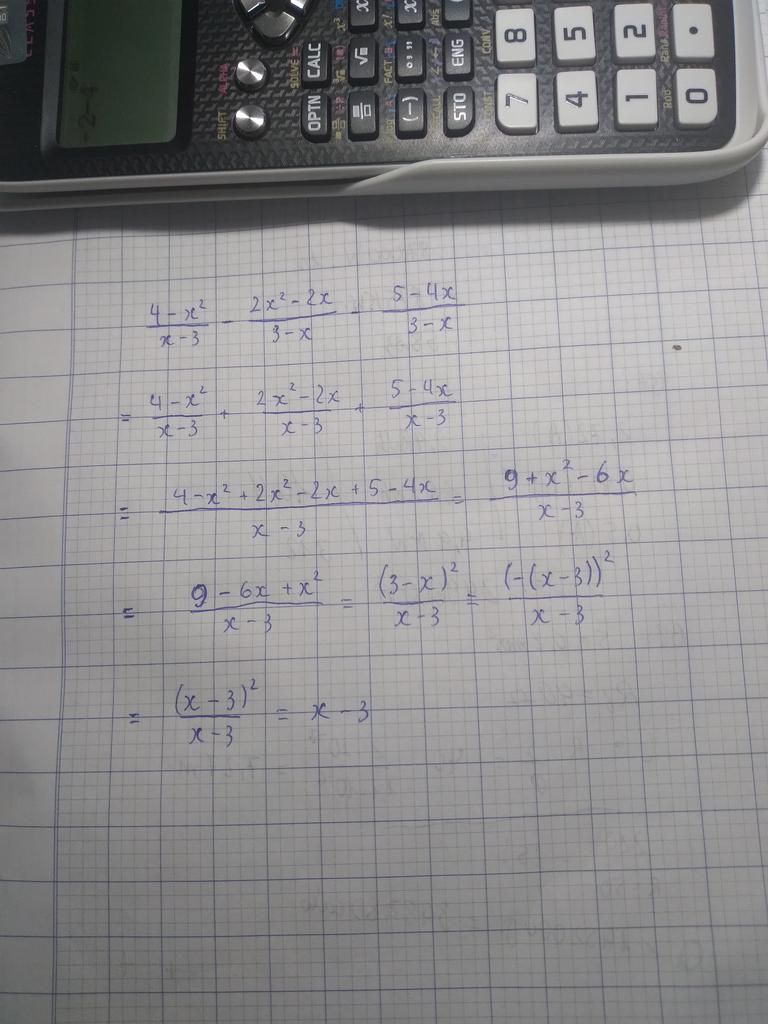 SHIFT ALPHA
OPTN CALC
(-) °,,,
STO ENG
7 8
4 5
1 2
0 •
(4-x²)/(x-3) - (2x²-2x)/(3-x) - (5-4x)/(3-x)
= (4-x²)/(x-3) + (2x²-2x)/(x-3) + (5-4x)/(x-3)
= (4-x²+2x²-2x+5-4x)/(x-3) = (9+x²-6x)/(x-3)
= (9-6x+x²)/(x-3) = (3-x)²/(x-3) = (-(x-3))²/(x-3)
= (x-3)²/(x-3) = x-3